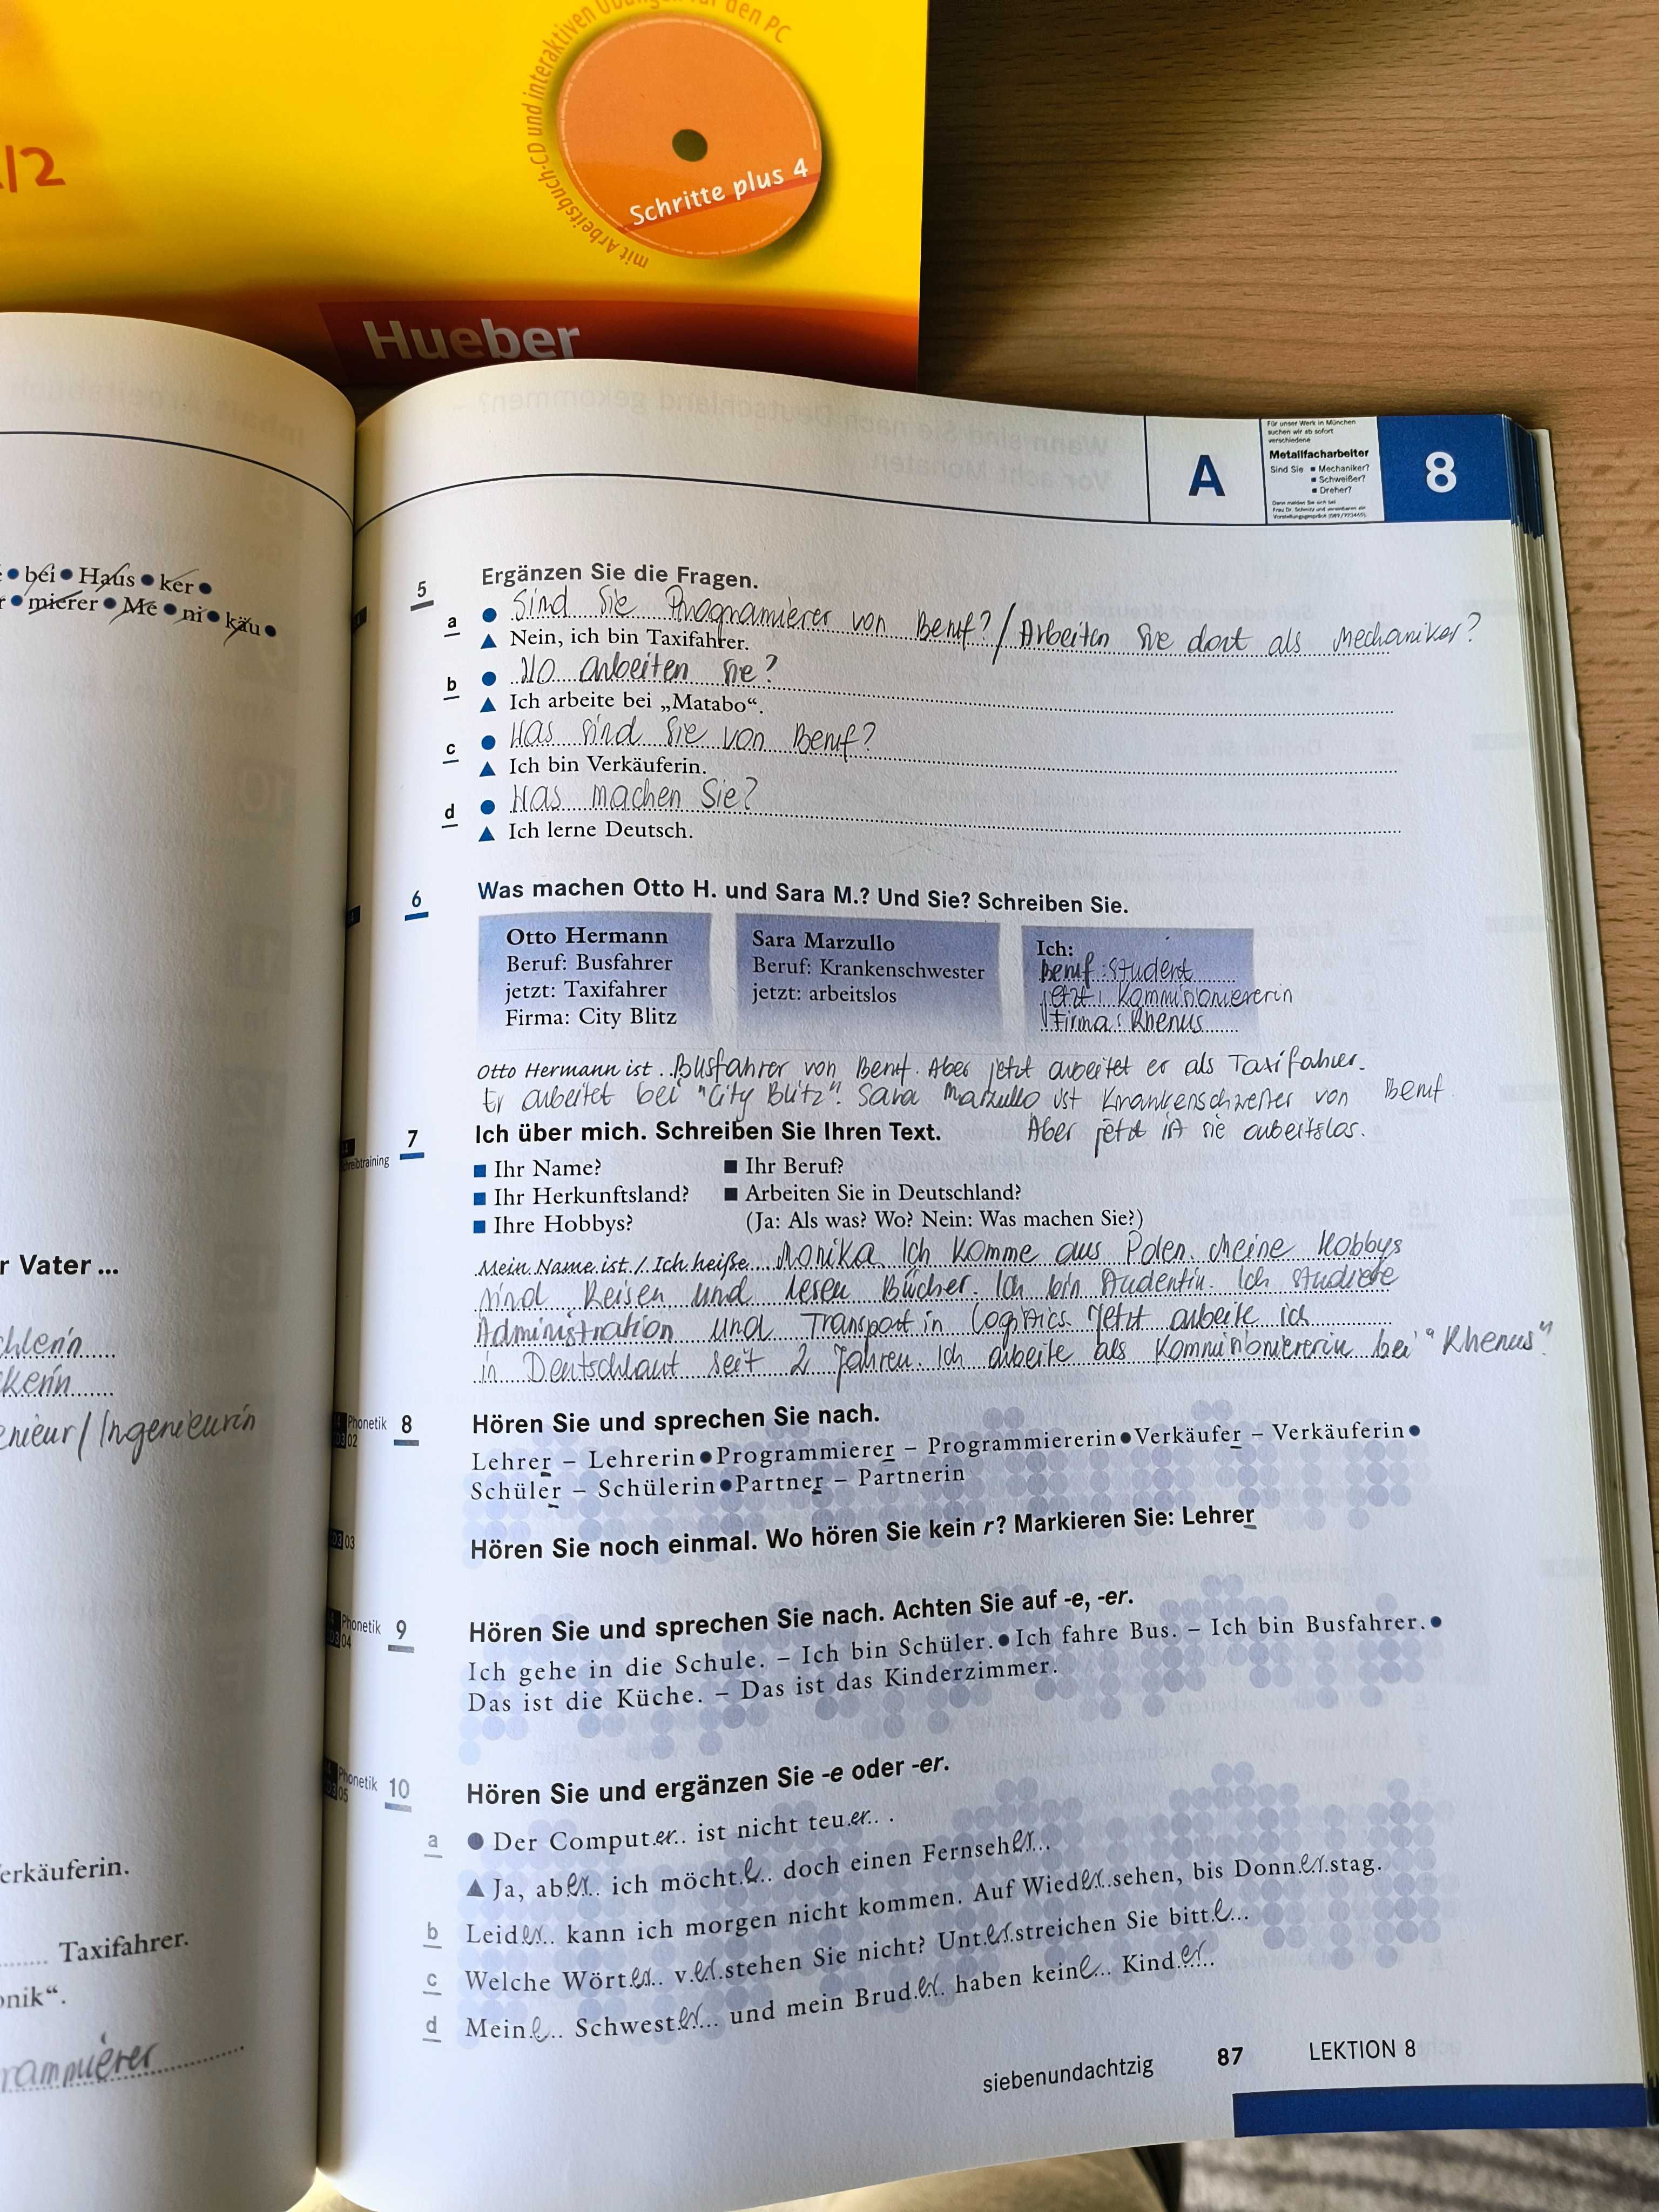 mit Arbeitsbuch-CD und interaktiven Übungen für den PC
/2
Schritte plus 4
Hueber
A
Für unser Werk in München
suchen wir ab sofort
verschiedene
Metallfacharbeiter
Sind Sie ▪ Mechaniker?
▪ Schweißer?
▪ Dreher?
8
● bei ● Haus ● ker ●
r ● mierer ● Me ● ni ● käu ●
5 Ergänzen Sie die Fragen.
a ● Sind Sie Programierer von Beruf? / Arbeiten Sie dort als Mechaniker?
▲ Nein, ich bin Taxifahrer.
b ● Wo arbeiten Sie?
▲ Ich arbeite bei „Matabo“.
c ● Was sind Sie von Beruf?
▲ Ich bin Verkäuferin.
d ● Was machen Sie?
▲ Ich lerne Deutsch.
6 Was machen Otto H. und Sara M.? Und Sie? Schreiben Sie.
Otto Hermann
Beruf: Busfahrer
jetzt: Taxifahrer
Firma: City Blitz
Sara Marzullo
Beruf: Krankenschwester
jetzt: arbeitslos
Ich:
Beruf: Student
jetzt: Kommisioniererin
Firma: Rhenus
Otto Hermann ist Busfahrer von Beruf. Aber jetzt arbeitet er als Taxifahrer.
Er arbeitet bei "City Blitz". Sara Marzullo ist Krankenschwester von Beruf.
Aber jetzt ist sie arbeitslos.
Schreibtraining 7 Ich über mich. Schreiben Sie Ihren Text.
■ Ihr Name? ■ Ihr Beruf?
■ Ihr Herkunftsland? ■ Arbeiten Sie in Deutschland?
■ Ihre Hobbys? (Ja: Als was? Wo? Nein: Was machen Sie?)
Mein Name ist / Ich heiße Monika. Ich komme aus Polen. Meine Hobbys
sind Reisen und lesen Bücher. Ich bin Studentin. Ich studiere
Administration und Transport in Logistics. Jetzt arbeite ich
in Deutschlaut seit 2 Jahren. Ich arbeite als Kommisioniererin bei "Rhenus".
r Vater ...
kerin
enieur / Ingenieurin
erkäuferin.
Taxifahrer.
onik“.
Phonetik 8 Hören Sie und sprechen Sie nach.
02
Lehrer – Lehrerin ● Programmierer – Programmiererin ● Verkäufer – Verkäuferin ●
Schüler – Schülerin ● Partner – Partnerin
03 Hören Sie noch einmal. Wo hören Sie kein r? Markieren Sie: Lehrer
Phonetik 9 Hören Sie und sprechen Sie nach. Achten Sie auf -e, -er.
04
Ich gehe in die Schule. – Ich bin Schüler. ● Ich fahre Bus. – Ich bin Busfahrer. ●
Das ist die Küche. – Das ist das Kinderzimmer.
Phonetik 10 Hören Sie und ergänzen Sie -e oder -er.
05
a ● Der Computer ist nicht teuer.
▲ Ja, aber ich möchte doch einen Fernseher
b Leider kann ich morgen nicht kommen. Auf Wiedersehen, bis Donnerstag.
c Welche Wörter verstehen Sie nicht? Unterstreichen Sie bitte
d Meine Schwester und mein Bruder haben keine Kinder
siebenundachtzig 87 LEKTION 8